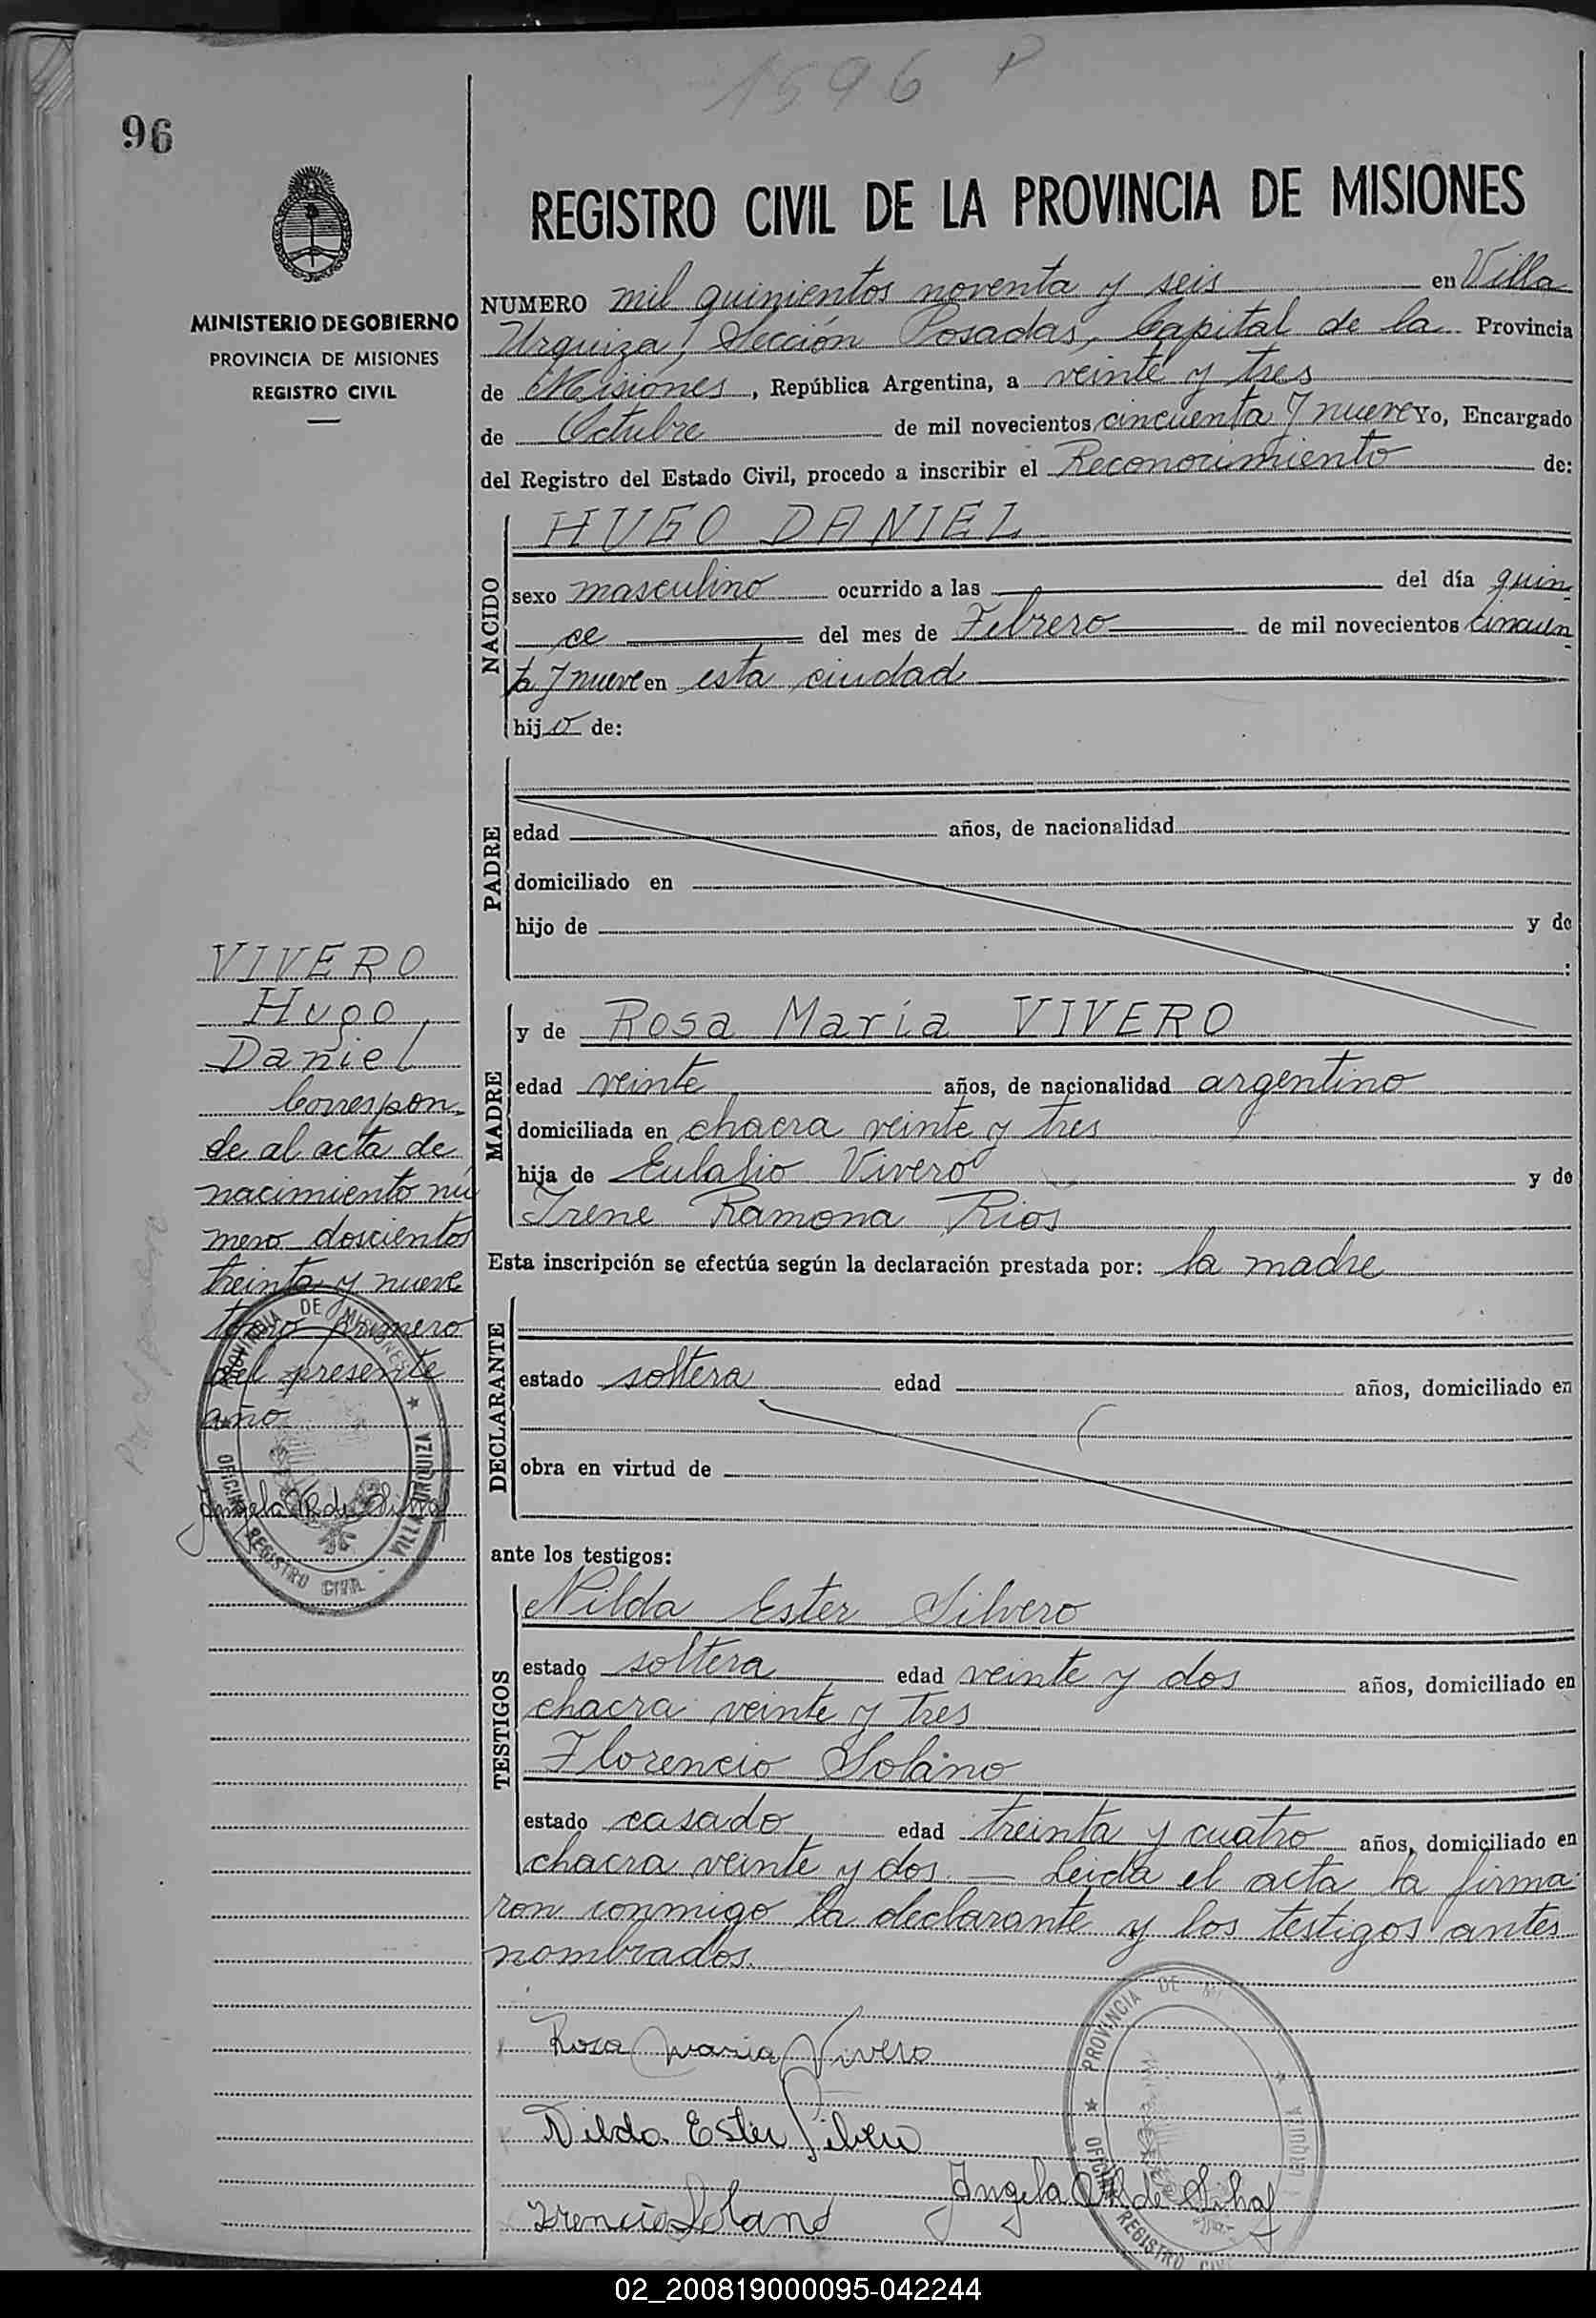 1596 P
96
REGISTRO CIVIL DE LA PROVINCIA DE MISIONES
MINISTERIO DE GOBIERNO
PROVINCIA DE MISIONES
REGISTRO CIVIL
NUMERO mil quinientos noventa y seis en Villa
Urquiza, Sección Posadas, Capital de la Provincia
de Misiones, República Argentina, a veinte y tres
de Octubre de mil novecientos cincuenta y nueve Yo, Encargado
del Registro del Estado Civil, procedo a inscribir el Reconocimiento de:
NACIDO
HUGO DANIEL
sexo masculino ocurrido a las del día quin
ce del mes de Febrero de mil novecientos cincuen
ta y nueve en esta ciudad
hijo de:
PADRE
edad años, de nacionalidad
domiciliado en
hijo de y de
:
MADRE
y de Rosa María VIVERO
edad veinte años, de nacionalidad argentino
domiciliada en chacra veinte y tres
hija de Eulalio Vivero y de
Irene Ramona Rios
Esta inscripción se efectúa según la declaración prestada por: la madre
DECLARANTE
estado soltera edad años, domiciliado en
obra en virtud de
ante los testigos:
TESTIGOS
Nilda Ester Silvero
estado soltera edad veinte y dos años, domiciliado en
chacra veinte y tres
Florencio Solano
estado casado edad treinta y cuatro años, domiciliado en
chacra veinte y dos. — Leida el acta la firma
ron conmigo la declarante y los testigos antes
nombrados.
Rosa Maria Vivero
Nilda Ester Silvero
Angela de
Solano
PROVINCIA DE
OFICINA REGISTRO
VIVERO
Hugo
Daniel
Correspon
de al acta de
nacimiento nú
mero doscientos
treinta y nueve
tomo primero
del presente
año
Angela de
PROVINCIA DE MISIONES
OFICINA REGISTRO CIVIL - VILLA URQUIZA
02_200819000095-042244